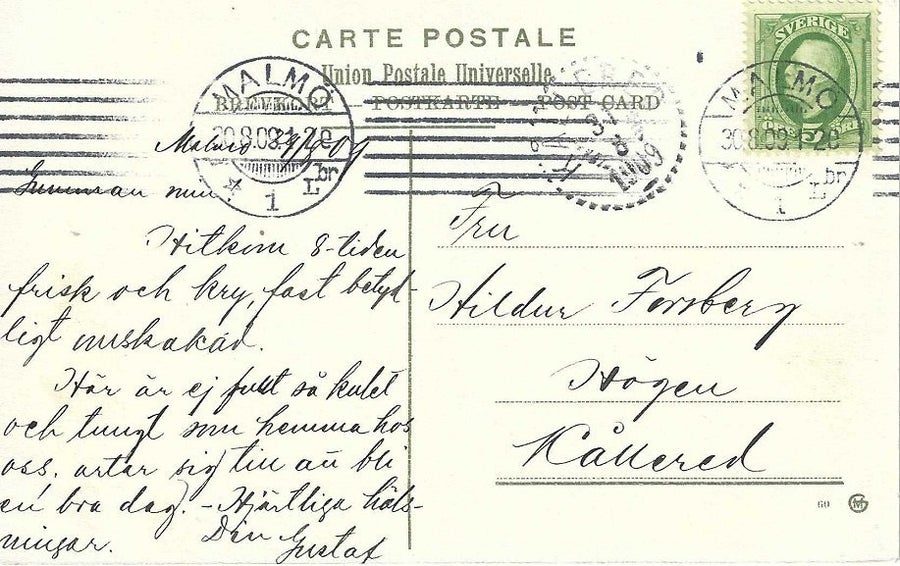 CARTE POSTALE
Union Postale Universelle
BREVKORT — POSTKARTE — POST CARD
SVERIGE
5
MALMÖ
30.8.09.1
1
L br
31
8
1909
MALMÖ
30.8.09.1
1
L br
Malmö 30/8 09
Gumman min
Hitkom 8-tiden
frisk och kry, fast betyd-
ligt
Här är ej fullt så kulet
och tungt som hemma hos
oss, artar sig till att bli
en bra dag. – Hjärtliga häls-
ningar. Din Gustaf
Fru
Hildur Forsberg
Högen
Kållered
60